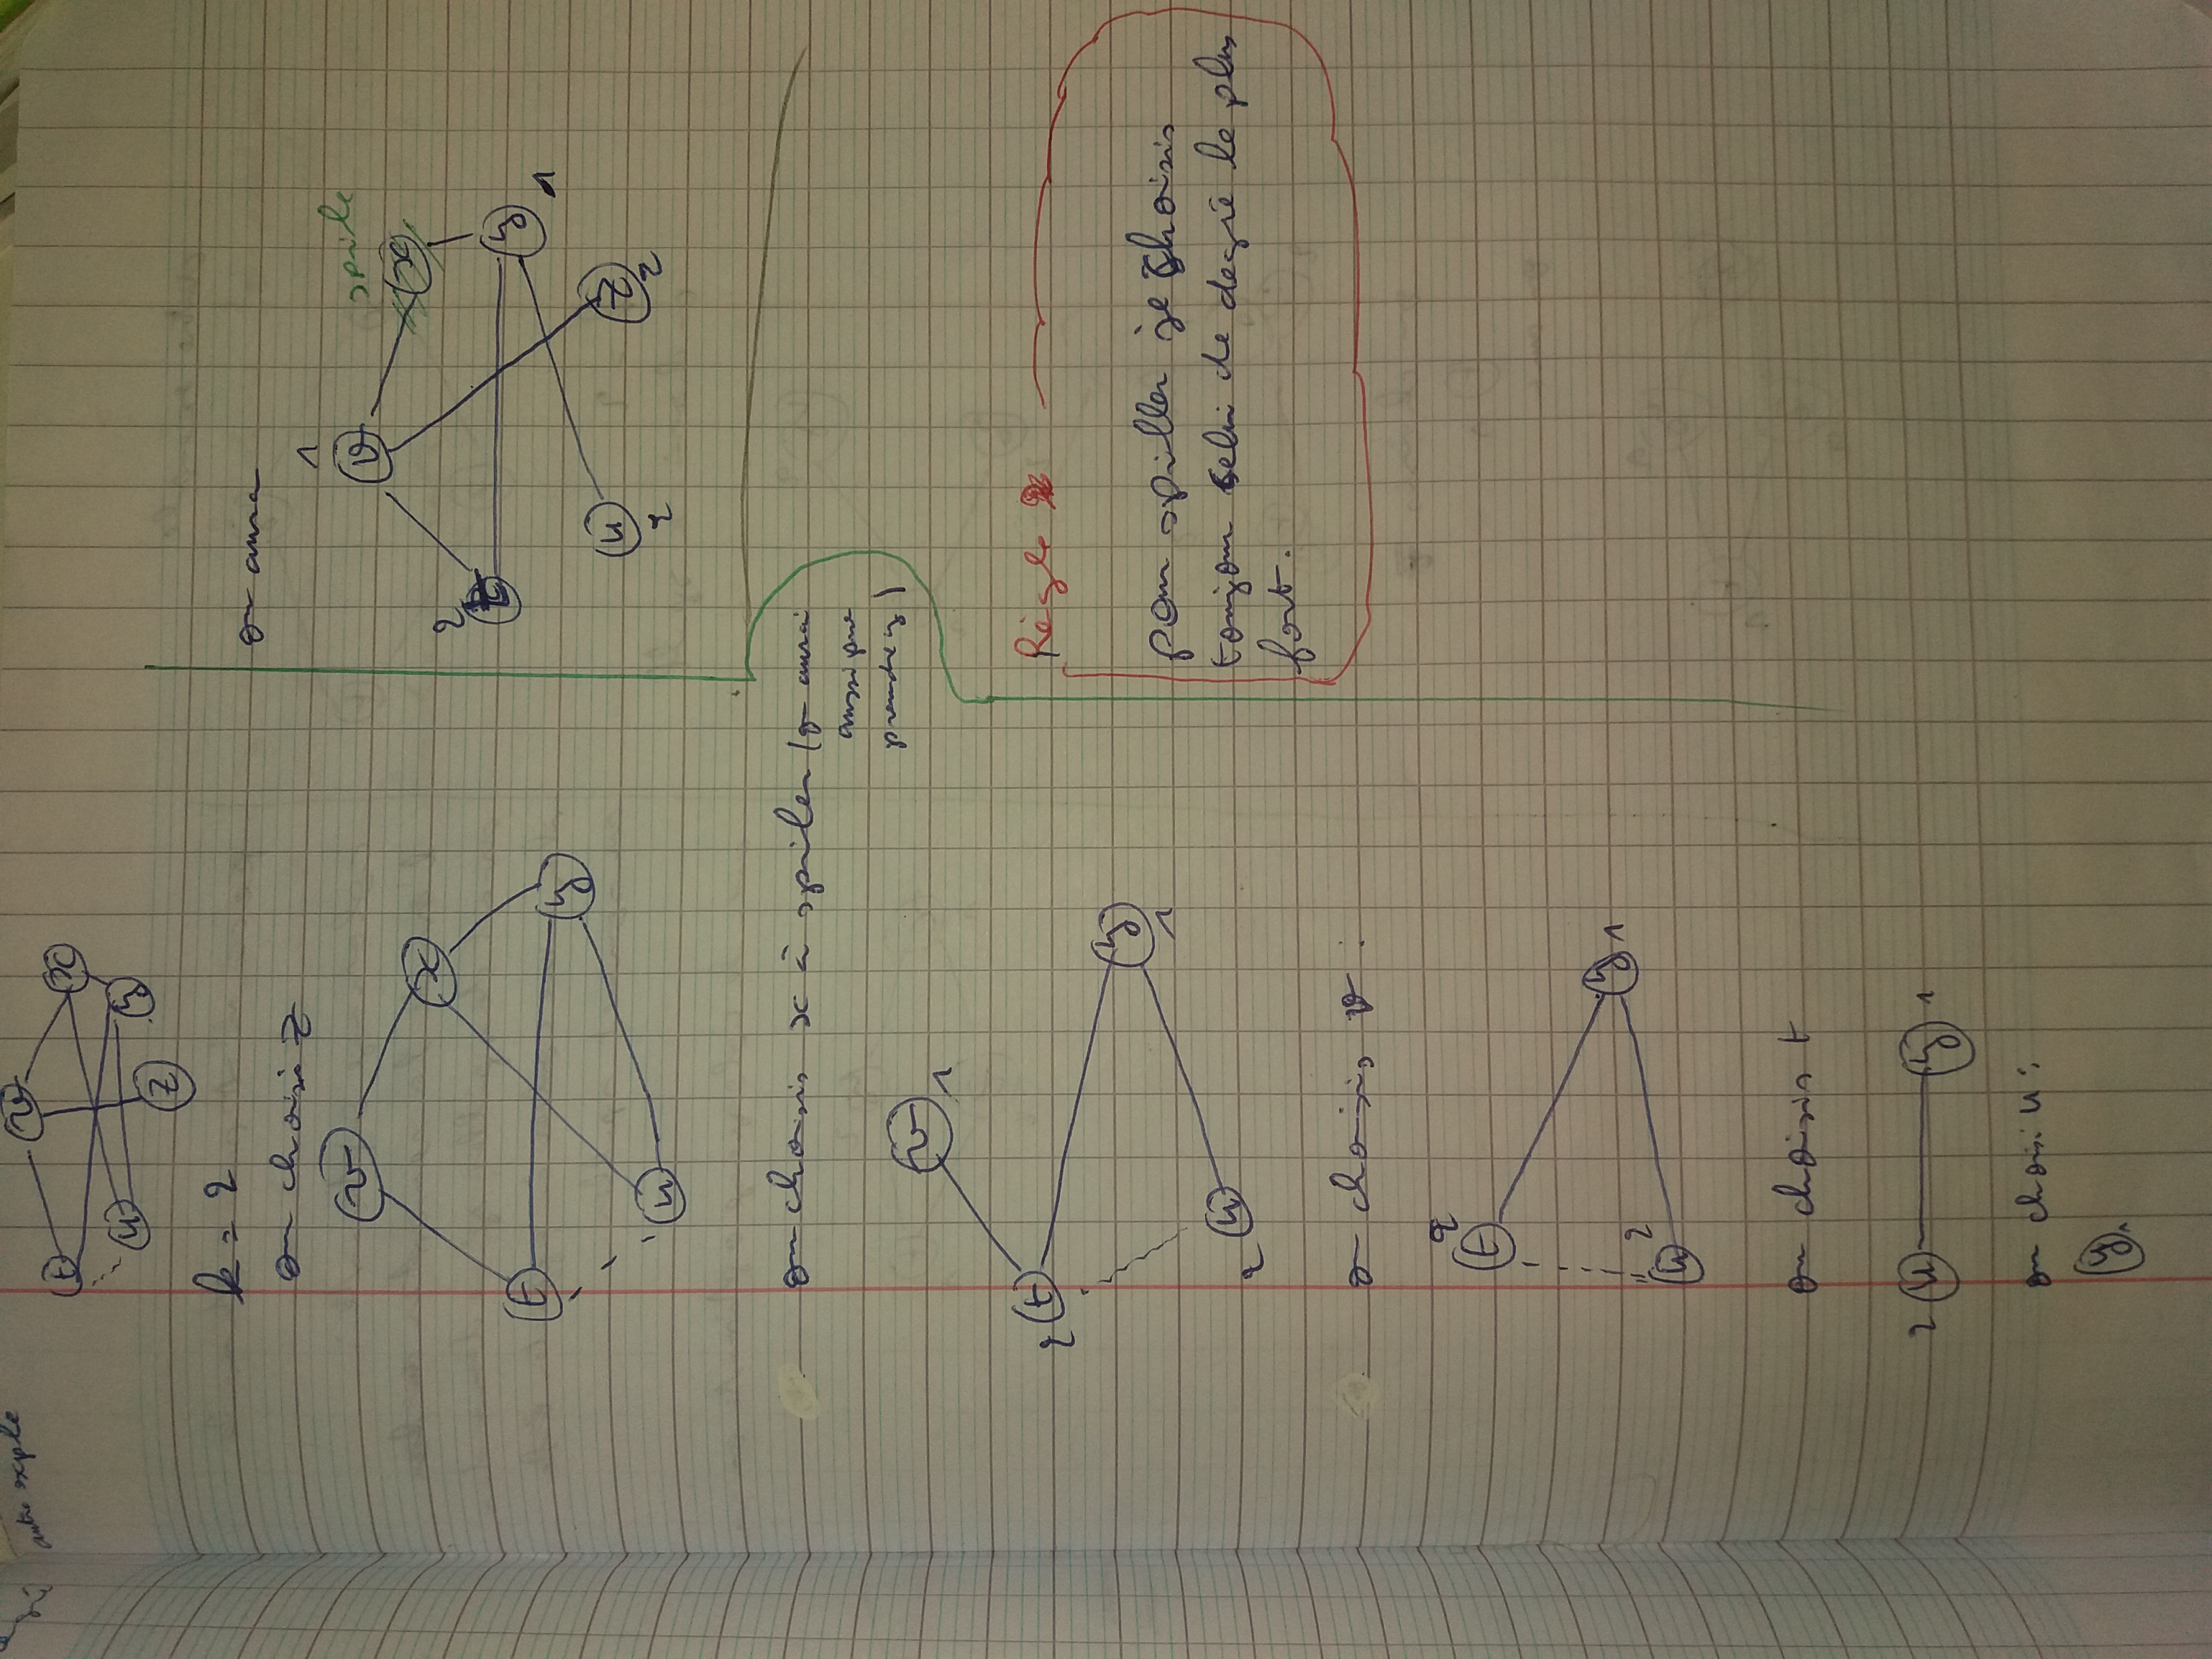 autre exple
v
t
x
u
y
z
k = 2
on choisi z
v
x
t
y
u
on choisis x à spiler (on aurai
aussi pue
prendre y)
v 1
2 t
y
1
2 u
on choisis v :
2
t
y 1
2
u
on choisis t
2 u y 1
on choisi u :
y 1
on aura
1
v
spile
x
2
t
y
1
u
2
z
2
Règle
pour spiller je choisis
toujour celui de degré le plus
fort.